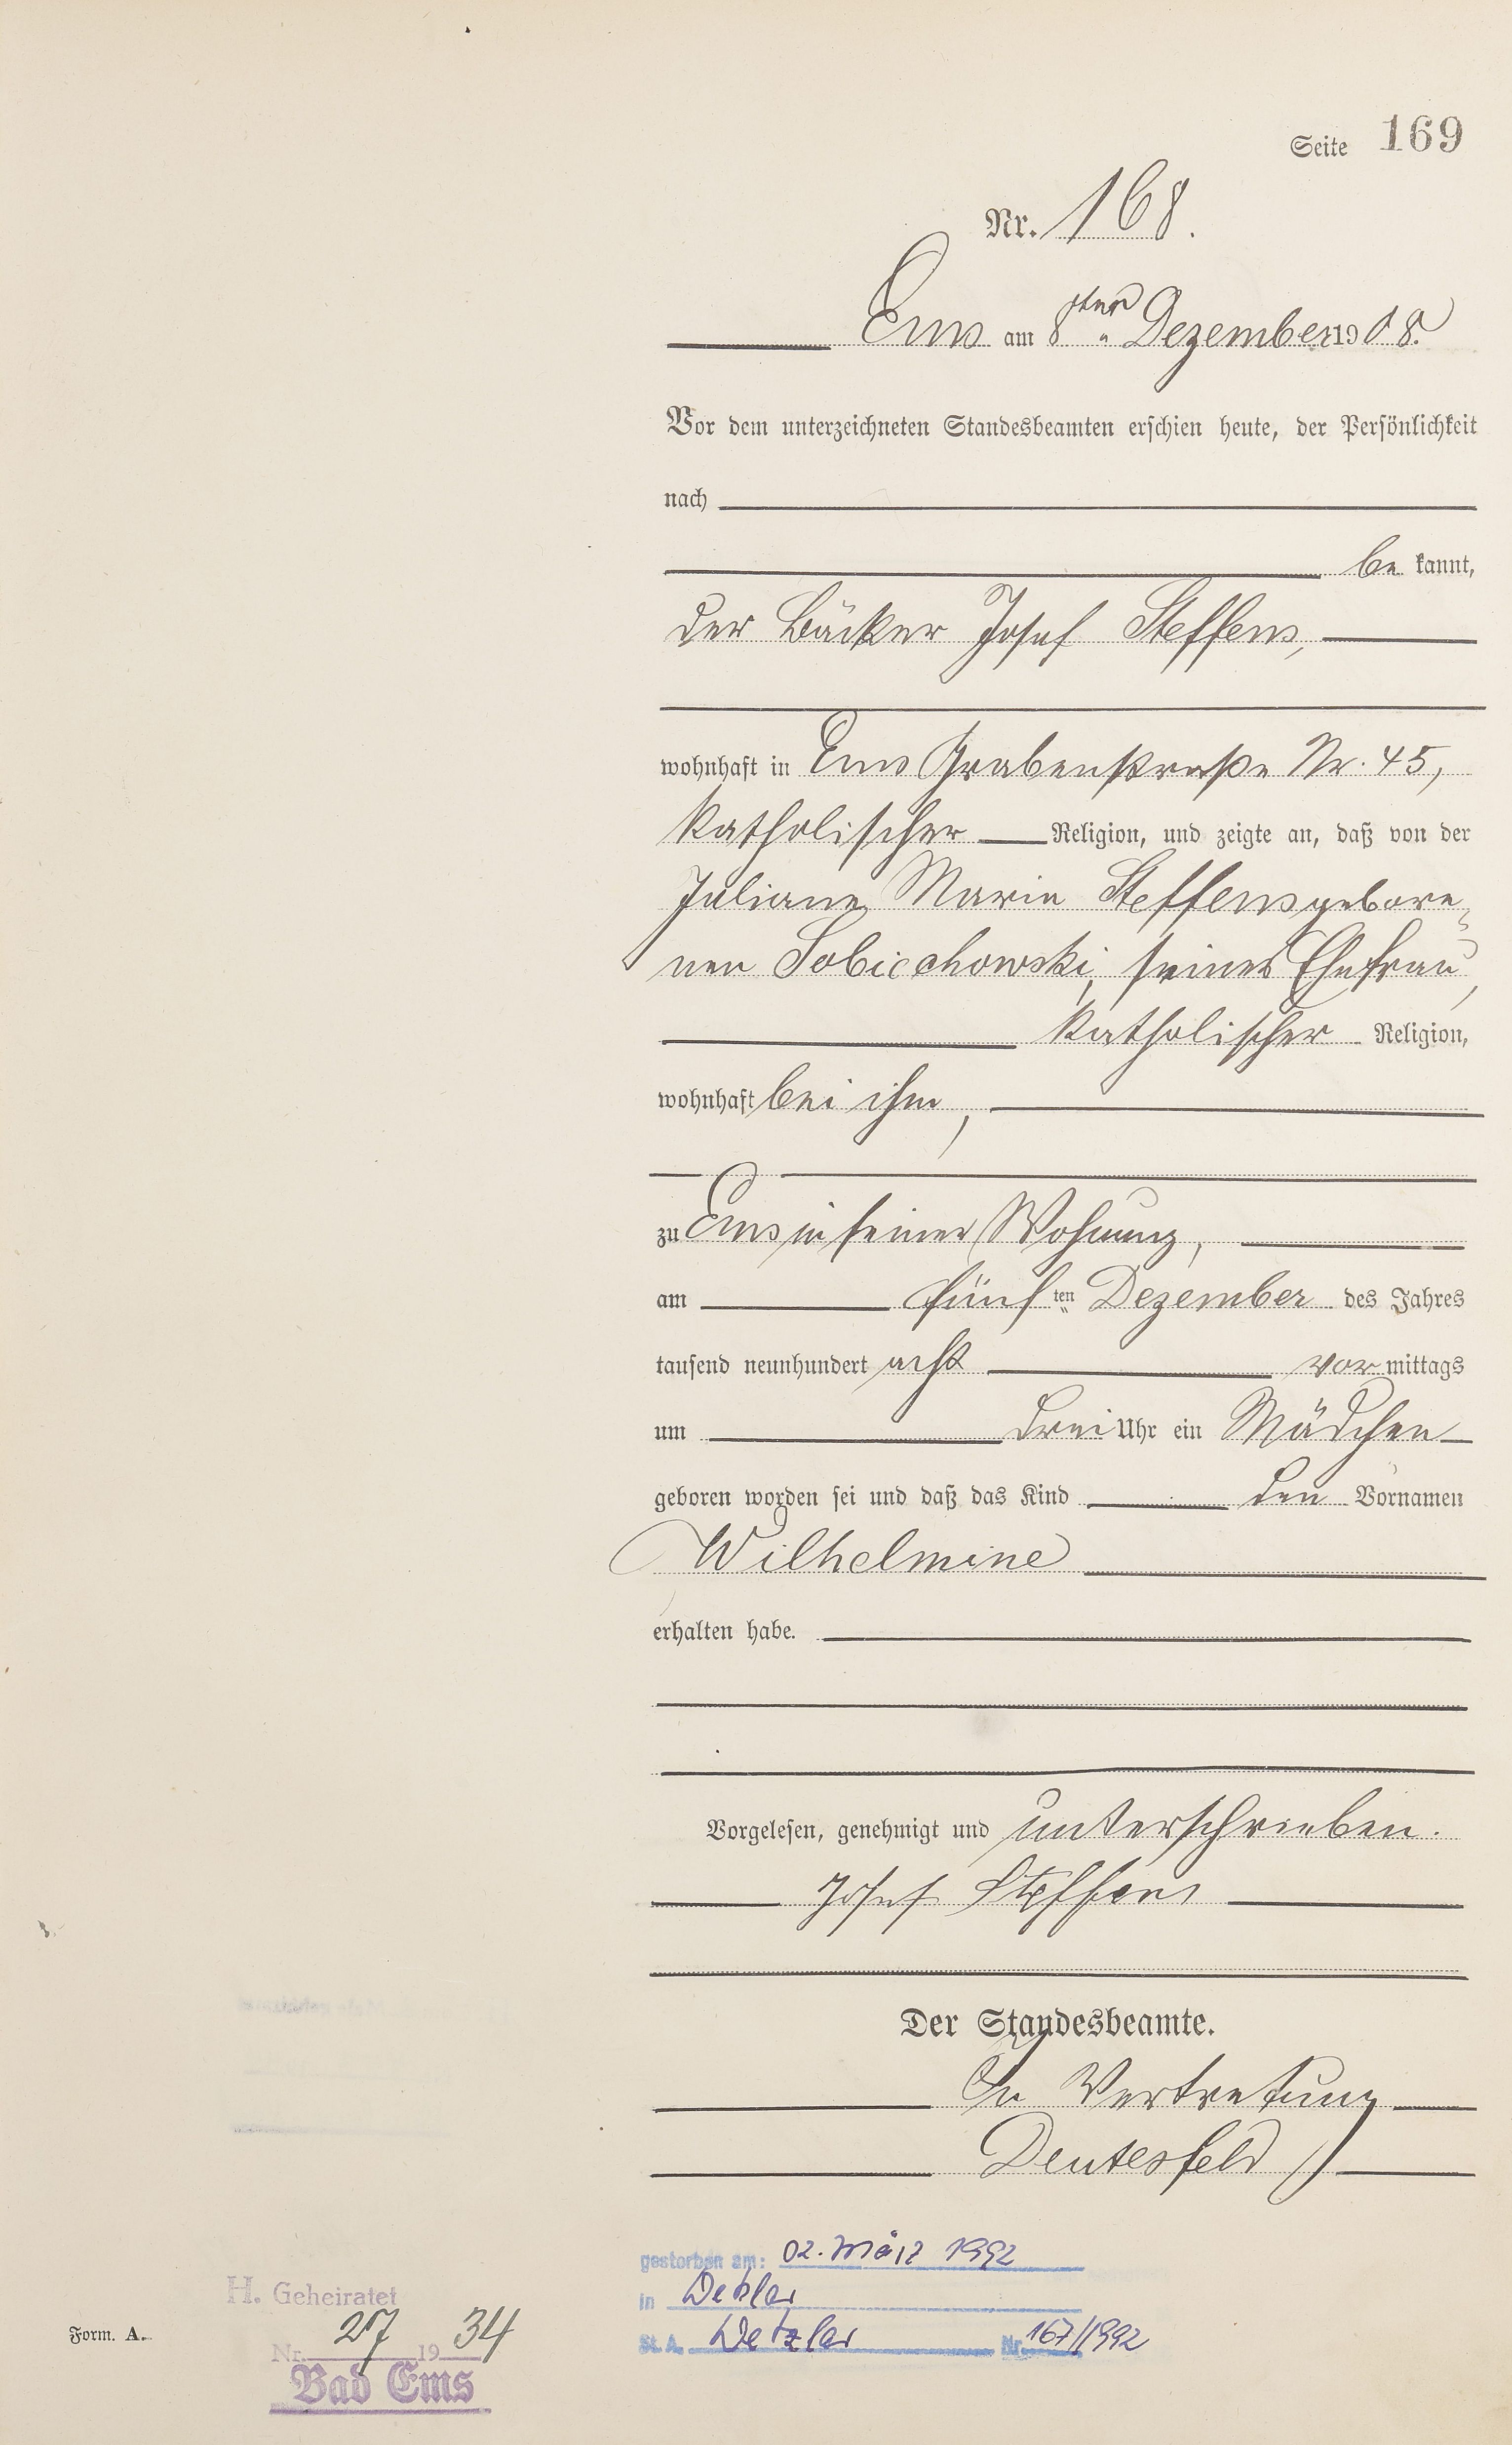 Seite 169
Nr. 168.
Ems am 8ten Dezember 1908.
Vor dem unterzeichneten Standesbeamten erschien heute, der Persönlichkeit
nach
be kannt,
der Bäcker Josef Steffens,
wohnhaft in Ems Grabenstraße Nr. 45,
katholischer Religion, und zeigte an, daß von der
Juliane Marie Steffens gebore-
nen Sobiechowski, seiner Ehefrau,
katholischer Religion,
wohnhaft bei ihm,
zu Ems in seiner Wohnung,
am fünf ten Dezember des Jahres
tausend neunhundert acht vor mittags
um drei Uhr ein Mädchen
geboren worden sei und daß das Kind den Vornamen
Wilhelmine
erhalten habe.
Vorgelesen, genehmigt und unterschrieben.
Josef Steffens
Der Standesbeamte.
In Vertretung
Deutesfeld
gestorben am: 02. März 1992
in Wetzlar
St. A. Wetzlar Nr. 167/1992
H. Geheiratet
Nr. 27 1934
Bad Ems
Form. A.